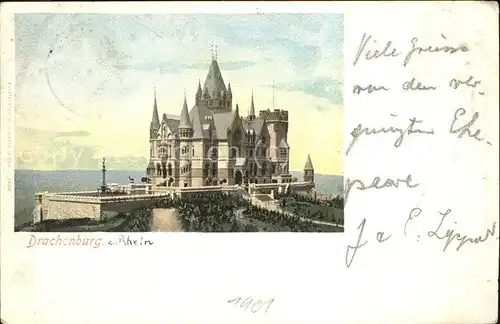 Viele Grüsse
von den ver-
gnügten Ehe-
paare
J u E. Lippert
Drachenburg. a. Rhein
1901